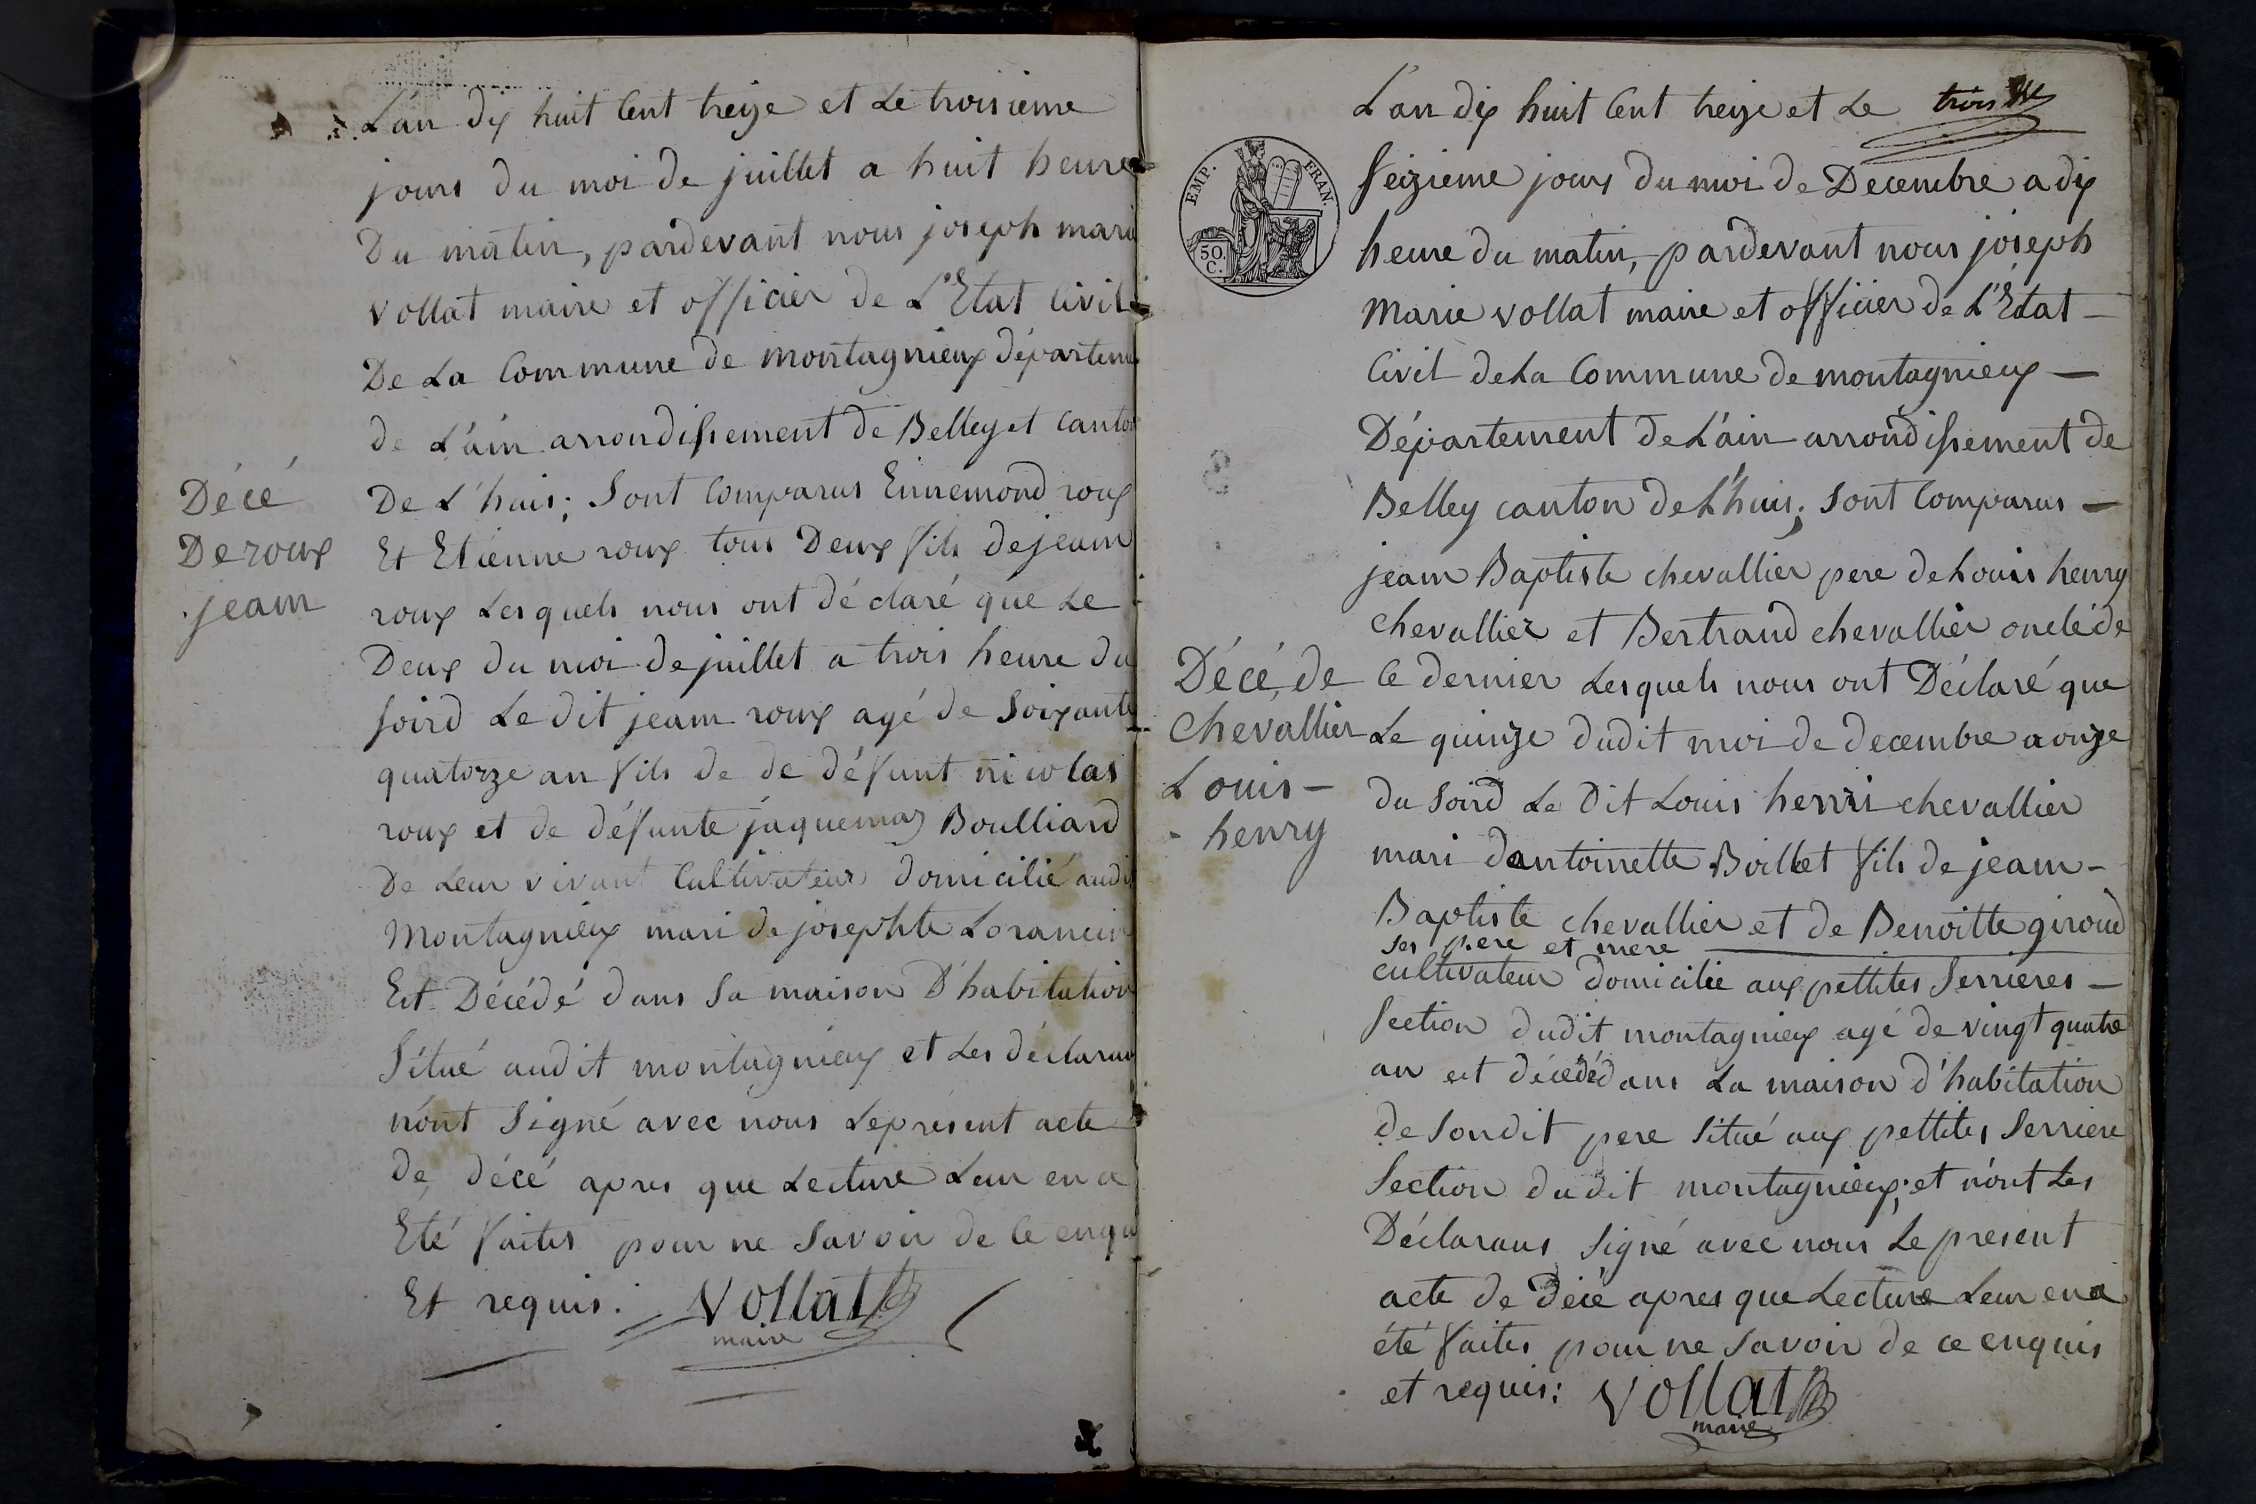 L'an dix huit Cent treize et Le troisieme
jours du moi de juillet a huit heure
Du matin, pardevant nous joseph mari
vollat maire et officier de L'Etat Civil
De La Commune de montagnieux départeme
de L'ain arrondissement de Belley et Canton
De L'huis; Sont Comparus Ennemond roux
Et Etienne roux tous Deux fils de jeam
roux Lesquels nous ont déclaré que Le
Deux du moi de juillet a trois heure du
soird Le dit jeam roux agé de Soixante
quatorze an fils de de défunt nicolas
roux et de défunte jaquemaz Boulliard
De Leur vivant Cultivateur domicilié audit
Montagnieux mari de josephte Lorancin
Est Décédé dans Sa maison D'habitation
Situé audit montagnieux et Les déclaran
n'ont Signé avec nous Leprésent acte
de décé apres que Lecture Leur en a
Eté faites pour ne Savoir de Ce enqu
Et requis. Vollat
maire
Décé
De roux
jeam
EMP. FRAN.
50.
C.
L'an dix huit Cent treize et Le trois
Seizieme jours du moi de Decembre a dix
heure du matin, pardevant nous joseph
Marie vollat maire et officier de L'Etat –
Civil deLa Commune de montagnieux –
Département de L'ain arrondissement de
Belley canton de L'huis; Sont Comparus –
jeam Baptiste chevallier pere de Louis henry
chevallier et Bertrand chevallier oncle de
Ce dernier Lesquels nous ont Déclaré que
Le quinze dudit moi de decembre a onze
du Soird Le Dit Louis henri chevallier
mari dantoinette Boillet fils de jeam –
Baptiste chevallier et de Benoitte giroud
ses pere et mere
cultivateur domicilie aux pettites Serrieres –
Section dudit montagnieux agé de vingt quatre
an est décédé dans La maison d'habitation
de Sondit pere Situé aux pettites Serriere
Section dudit montagnieux; et n'ont Les
Déclarans Signé avec nous Le present
acte de Décé apres que Lecture Leur en a
été faites pour ne Savoir de ce enquis
et requis: Vollat
maire
Décé, de
Chevallier
Louis –
henry